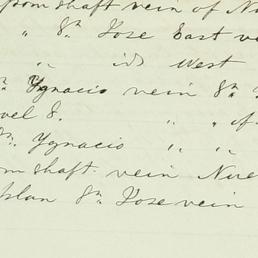 from shaft vein of Nu
" Sn. Jose East ve
" id West
Sn. Ygnacio vein Sn.
vel 8. " " of
Sn. Ygnacio " "
om shaft vein Nue
plan Sn Jose vein